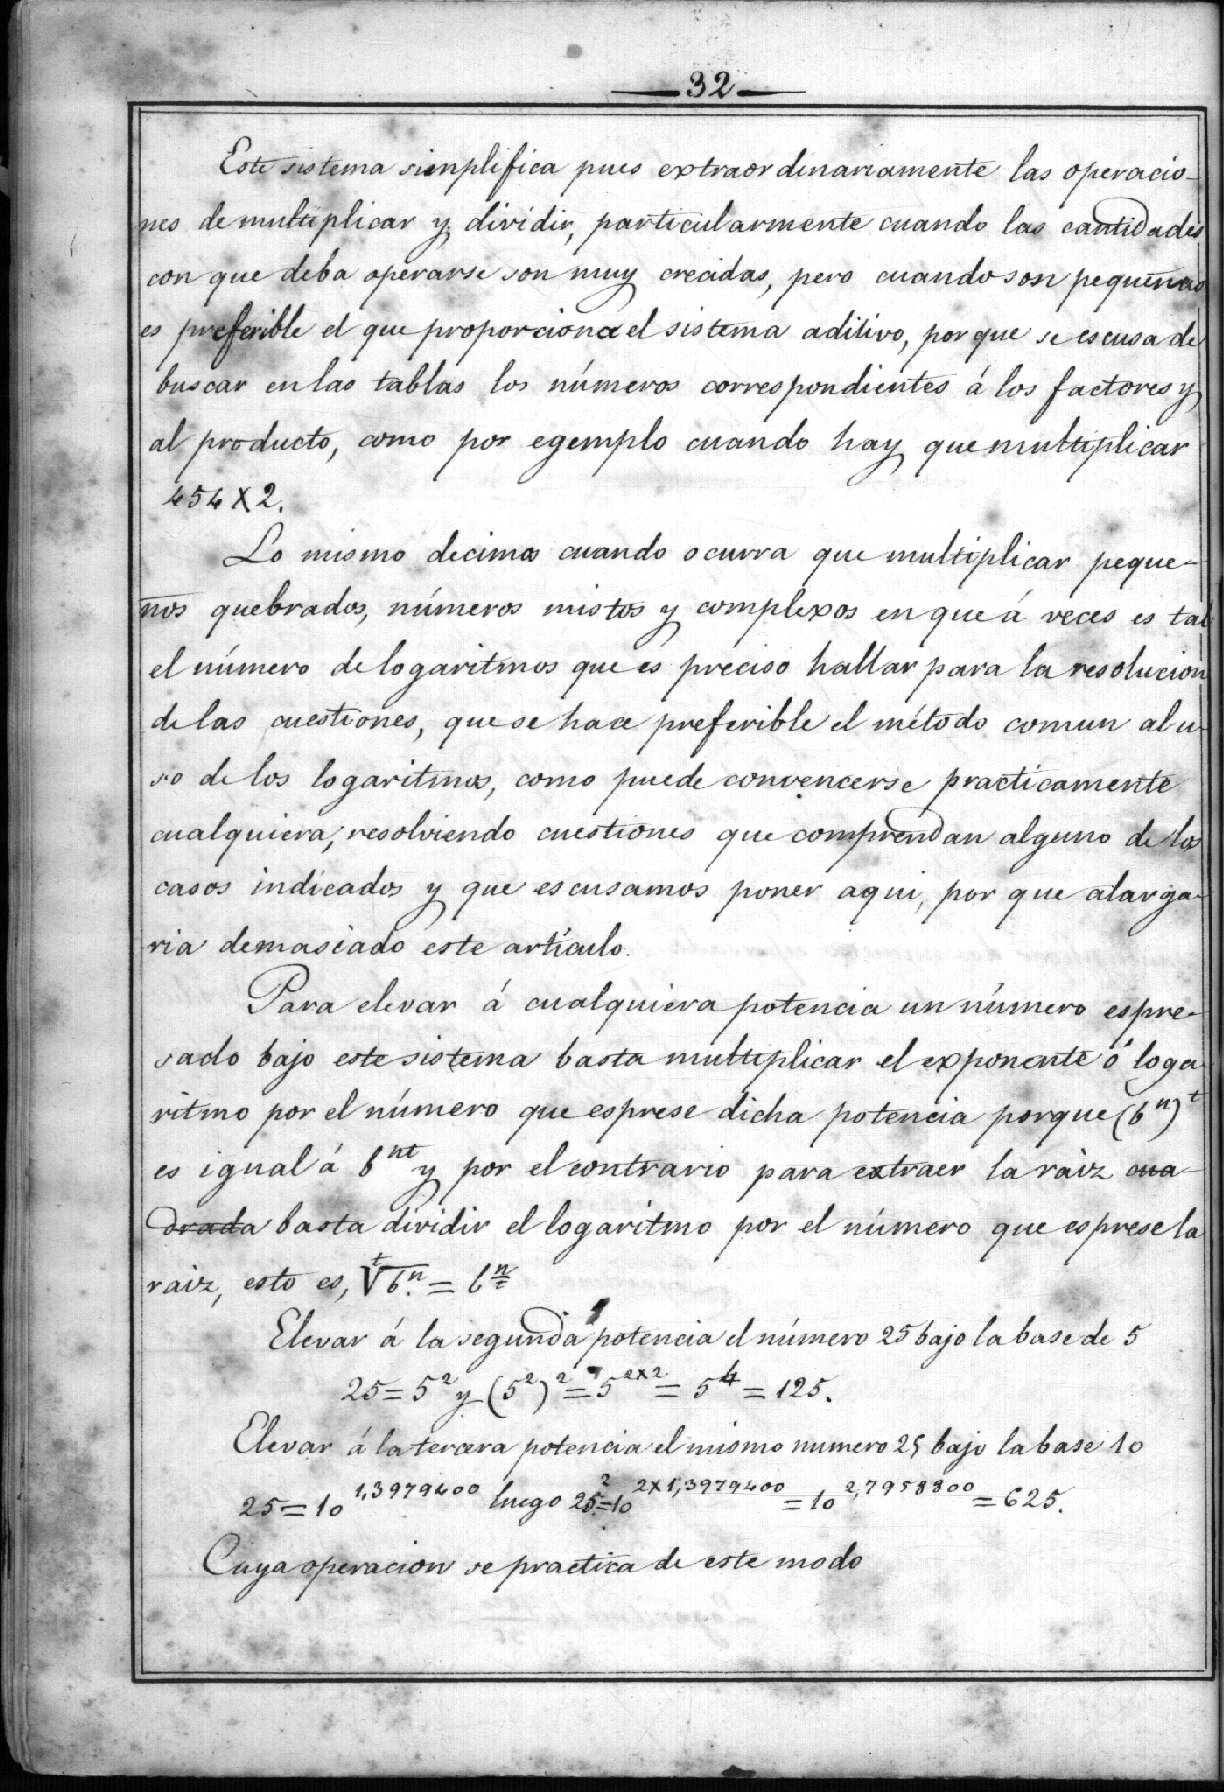 32
Este sistema simplifica pues extraordinariamente las operacio-
nes de multiplicar y dividir, particularmente cuando las cantidades
con que deba operarse son muy crecidas, pero cuando son pequeñas
es preferible el que proporciona el sistema aditivo, porque se escusa de
buscar en las tablas los números correspondientes á los factores y
al producto, como por egemplo cuando hay que multiplicar
454 X 2.
Lo mismo decimos cuando ocurra que multiplicar peque-
ños quebrados, números mistos y complexos en que á veces es tal
el número de logaritmos que es preciso hallar para la resolucion
de las cuestiones, que se hace preferible el método comun al u-
so de los logaritmos, como puede convencerse practicamente
cualquiera, resolviendo cuestiones que comprendan alguno de los
casos indicados y que escusamos poner aqui, por que alarga-
ria demasiado este artículo.
Para elevar á cualquiera potencia un número espre-
sado bajo este sistema basta multiplicar el exponente ó loga-
ritmo por el número que esprese dicha potencia porque (bⁿ)ᵗ
es igual á bⁿᵗ y por el contrario para extraer la raiz cua-
drada basta dividir el logaritmo por el número que esprese la
raiz, esto es, ᵗ√bⁿ. = b^n/t
Elevar á la segunda potencia el número 25 bajo la base de 5
25 = 5² y (5²)² = 5²ˣ² = 5⁴ = 125.
Elevar á la tercera potencia el mismo numero 25 bajo la base 10
25 = 10^1,3979400 luego 25² = 10^2X1,3979400 = 10^2,7958800 = 625.
Cuya operacion se practica de este modo